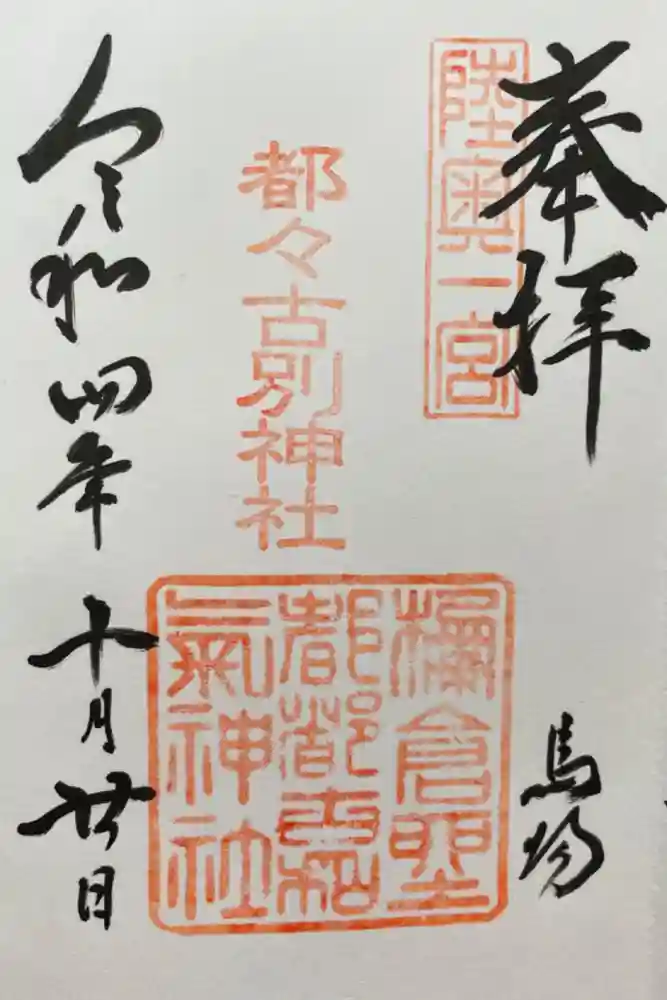 奉拝
陸奥一宮
馬場
都々古別神社
令和四年十月廿日